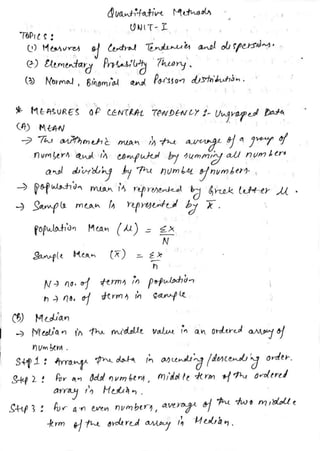 Quantitative Methods
UNIT - I
TOPICS :
(1) Measures of Central Tendencies and dispersions.
(2) Elementary Probability Theory.
(3) Normal, Binomial and Poisson distribution.
* MEASURES OF CENTRAL TENDENCY :- Ungrouped Data
(A) MEAN
→ The arithmetic mean is the average of a group of
numbers and is computed by summing all numbers
and dividing by The number of numbers.
→ population mean is represented by Greek letter μ.
→ Sample mean is represented by x̅.
Population Mean (μ) = Σx / N
Sample Mean (x̅) = Σx / n
N → no. of terms in population
n → no. of terms in sample
(B) Median
→ Median is the middle value in an ordered array of
numbers.
Step 1 : Arrange the data in ascending /descending order.
Step 2 : For an Odd numbers, middle term of the ordered
array is Median.
Step 3 : For an even numbers, average of the two middle
term of the ordered array is Median.